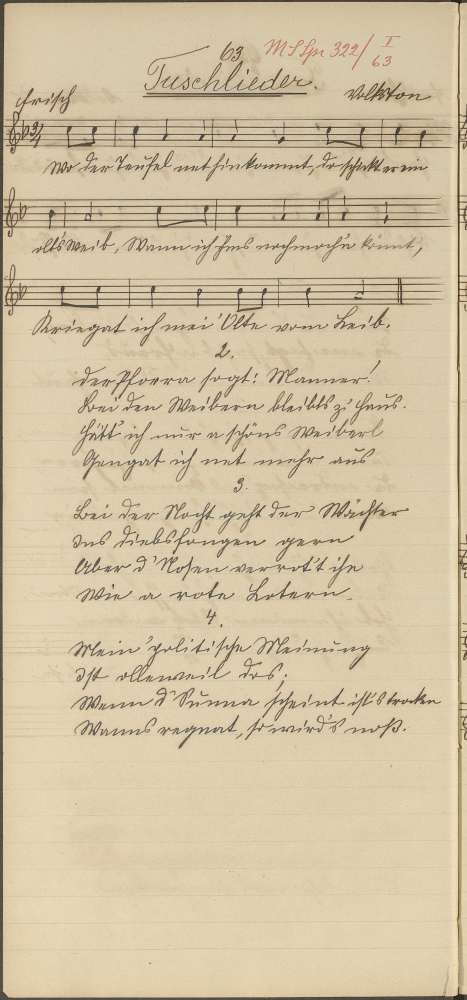 63
MSSpr 322/ I
63
Tuschlieder.
Frisch
Volkston
3/4
Wo der Teufel net hinkommt, do schickt er ein
olt's Weib, Wann ich ihms nochmoch'n könnt',
Kriegat ich mei' Olte vom Leib.
2.
Der Pforra sogt: Manner!
Bei den Weibern bleibts z' Haus.
Hätt' ich nur a schöns Weiberl
Gengat ich net mehr aus
3.
Bei der Nocht geht der Wächter
Ins Diebsfongen gern
Aber d' Nosen verrot't ihn
Wie a rote Lotern.
4.
Mein' politische Meinung
Ist ollerweil dos;
Wenn d' Sunna scheint ist's trocken
Wanns regnat, so wird's noß.